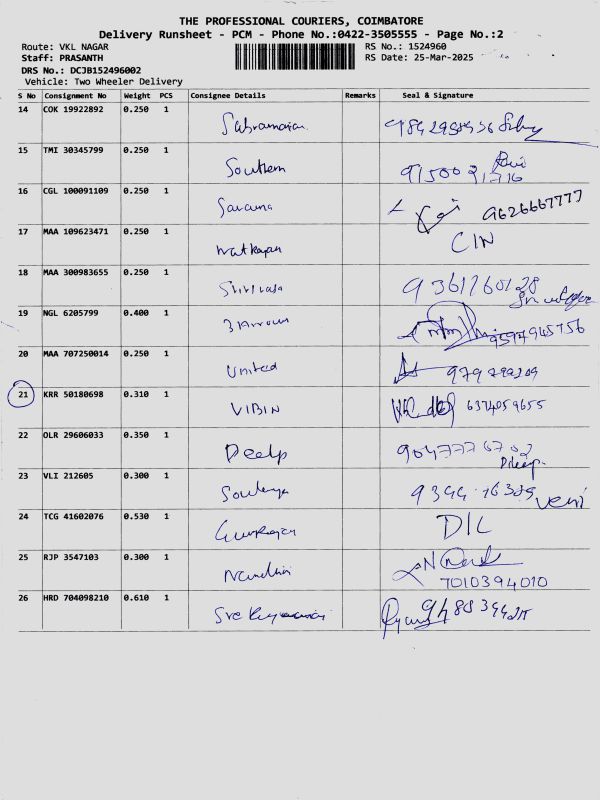 THE PROFESSIONAL COURIERS, COIMBATORE
Delivery Runsheet - PCM - Phone No.:0422-3505555 - Page No.:2
Route: VKL NAGAR RS No.: 1524960
Staff: PRASANTH RS Date: 25-Mar-2025
DRS No.: DCJB152496002
Vehicle: Two Wheeler Delivery
S No Consignment No Weight PCS Consignee Details Remarks Seal & Signature
14 COK 19922892 0.250 1
15 TMI 30345799 0.250 1 Southern
16 CGL 100091109 0.250 1 9626667777
17 MAA 109623471 0.250 1 CIN
18 MAA 300983655 0.250 1 9361760128
19 NGL 6205799 0.400 1 3 Arrows
20 MAA 707250014 0.250 1 United
21 KRR 50180698 0.310 1 VIBIN 6374059655
22 OLR 29606033 0.350 1 Deelp
23 VLI 212605 0.300 1 Veni
24 TCG 41602076 0.530 1 DIL
25 RJP 3547103 0.300 1 Nandhini 7010394010
26 HRD 704098210 0.610 1 Sre